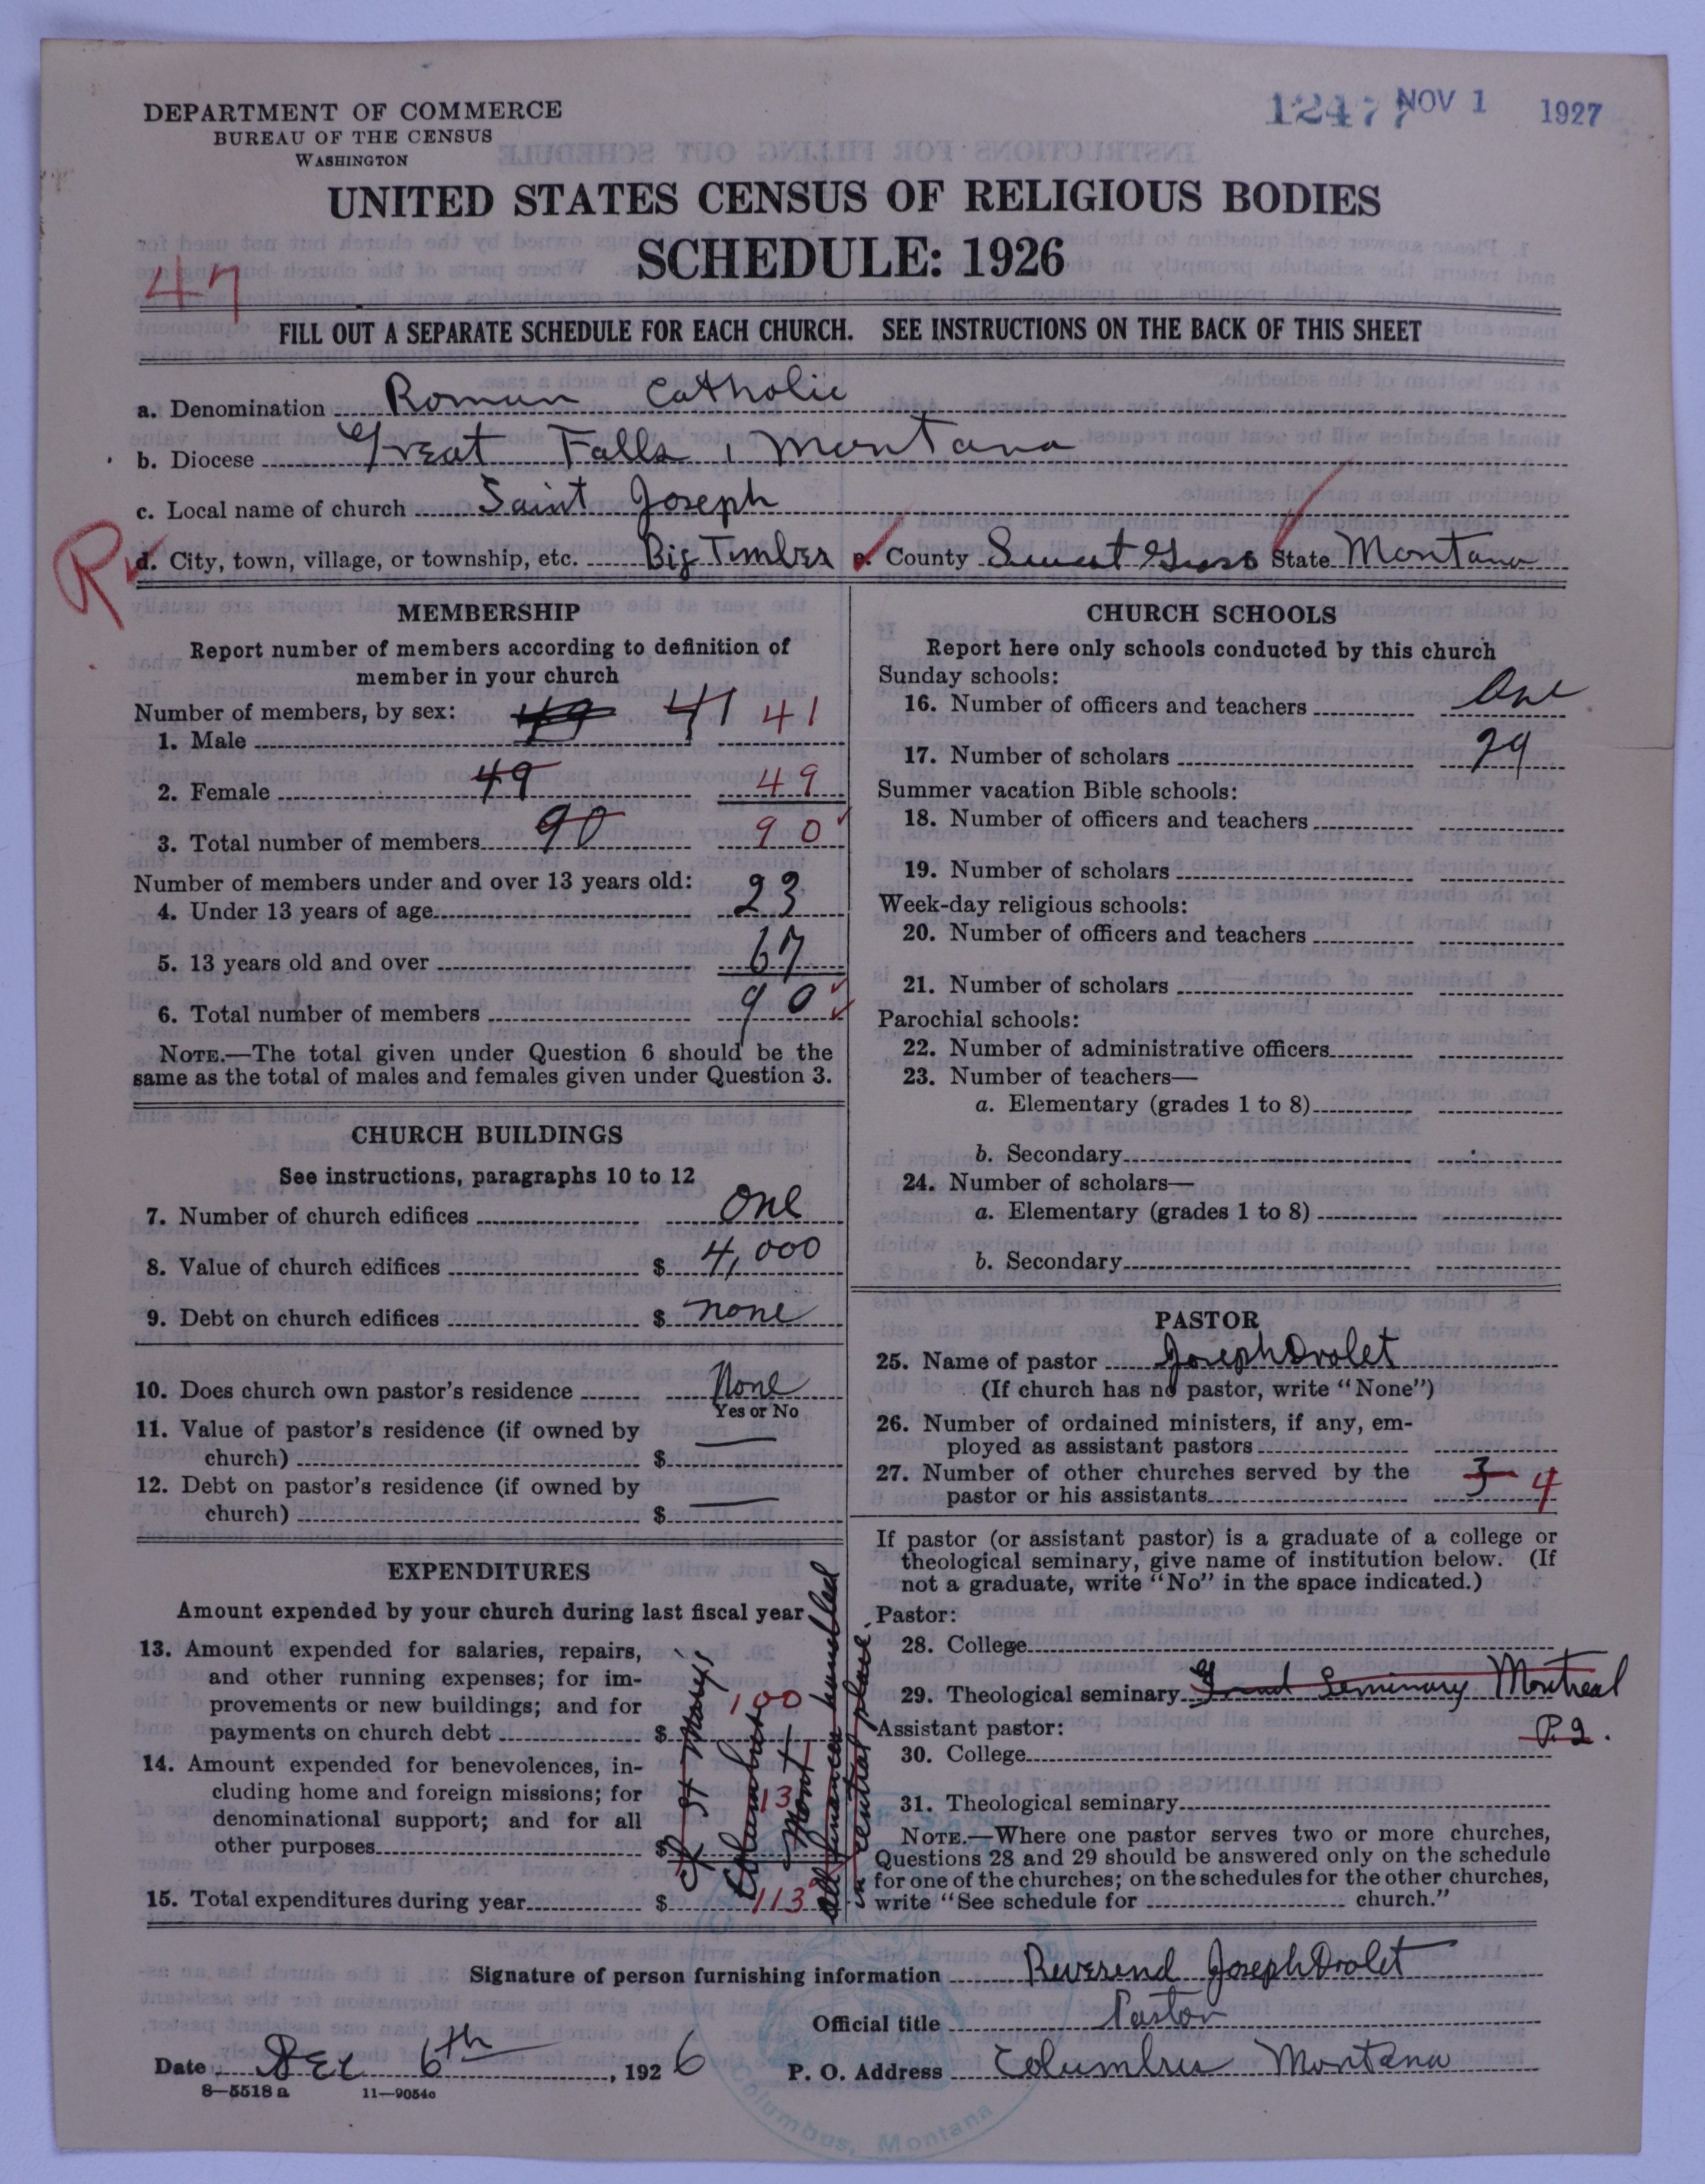 DEPARTMENT OF COMMERCE
BUREAU OF THE CENSUS
WASHINGTON
12477 NOV 1 1927
UNITED STATES CENSUS OF RELIGIOUS BODIES
SCHEDULE: 1926
47
FILL OUT A SEPARATE SCHEDULE FOR EACH CHURCH. SEE INSTRUCTIONS ON THE BACK OF THIS SHEET
a. Denomination Roman Catholic
b. Diocese Great Falls, Montana
c. Local name of church Saint Joseph
R
d. City, town, village, or township, etc. Big Timber e. County Sweet Grass State Montana
MEMBERSHIP
Report number of members according to definition of
member in your church
Number of members, by sex:
1. Male 49 41 41
2. Female 49 49
3. Total number of members 90 90
Number of members under and over 13 years old:
4. Under 13 years of age 23
5. 13 years old and over 67
6. Total number of members 90
NOTE.—The total given under Question 6 should be the
same as the total of males and females given under Question 3.
CHURCH BUILDINGS
See instructions, paragraphs 10 to 12
7. Number of church edifices One
8. Value of church edifices $ 4,000
9. Debt on church edifices $ none
10. Does church own pastor's residence None
Yes or No
11. Value of pastor's residence (if owned by
church) $ —
12. Debt on pastor's residence (if owned by
church) $ —
EXPENDITURES
Amount expended by your church during last fiscal year
13. Amount expended for salaries, repairs,
and other running expenses; for im-
provements or new buildings; and for
payments on church debt $ 100
14. Amount expended for benevolences, in-
cluding home and foreign missions; for
denominational support; and for all
other purposes $ 13
15. Total expenditures during year $ 113
St Marys
Columbus
Mont
all finances handled
central place
CHURCH SCHOOLS
Report here only schools conducted by this church
Sunday schools:
16. Number of officers and teachers One
17. Number of scholars 29
Summer vacation Bible schools:
18. Number of officers and teachers
19. Number of scholars
Week-day religious schools:
20. Number of officers and teachers
21. Number of scholars
Parochial schools:
22. Number of administrative officers
23. Number of teachers—
a. Elementary (grades 1 to 8)
b. Secondary
24. Number of scholars—
a. Elementary (grades 1 to 8)
b. Secondary
PASTOR
25. Name of pastor Joseph Drolet
(If church has no pastor, write "None")
26. Number of ordained ministers, if any, em-
ployed as assistant pastors
27. Number of other churches served by the
pastor or his assistants 3 4
If pastor (or assistant pastor) is a graduate of a college or
theological seminary, give name of institution below. (If
not a graduate, write "No" in the space indicated.)
Pastor:
28. College
29. Theological seminary Grand Seminary Montreal
P.Q.
Assistant pastor:
30. College
31. Theological seminary
NOTE.—Where one pastor serves two or more churches,
Questions 28 and 29 should be answered only on the schedule
for one of the churches; on the schedules for the other churches,
write "See schedule for church."
Signature of person furnishing information Reverend Joseph Drolet
Official title Pastor
Date Dec 6th, 1926 P. O. Address Columbus Montana
8—5518 a 11—9054c
Columbus, Montana